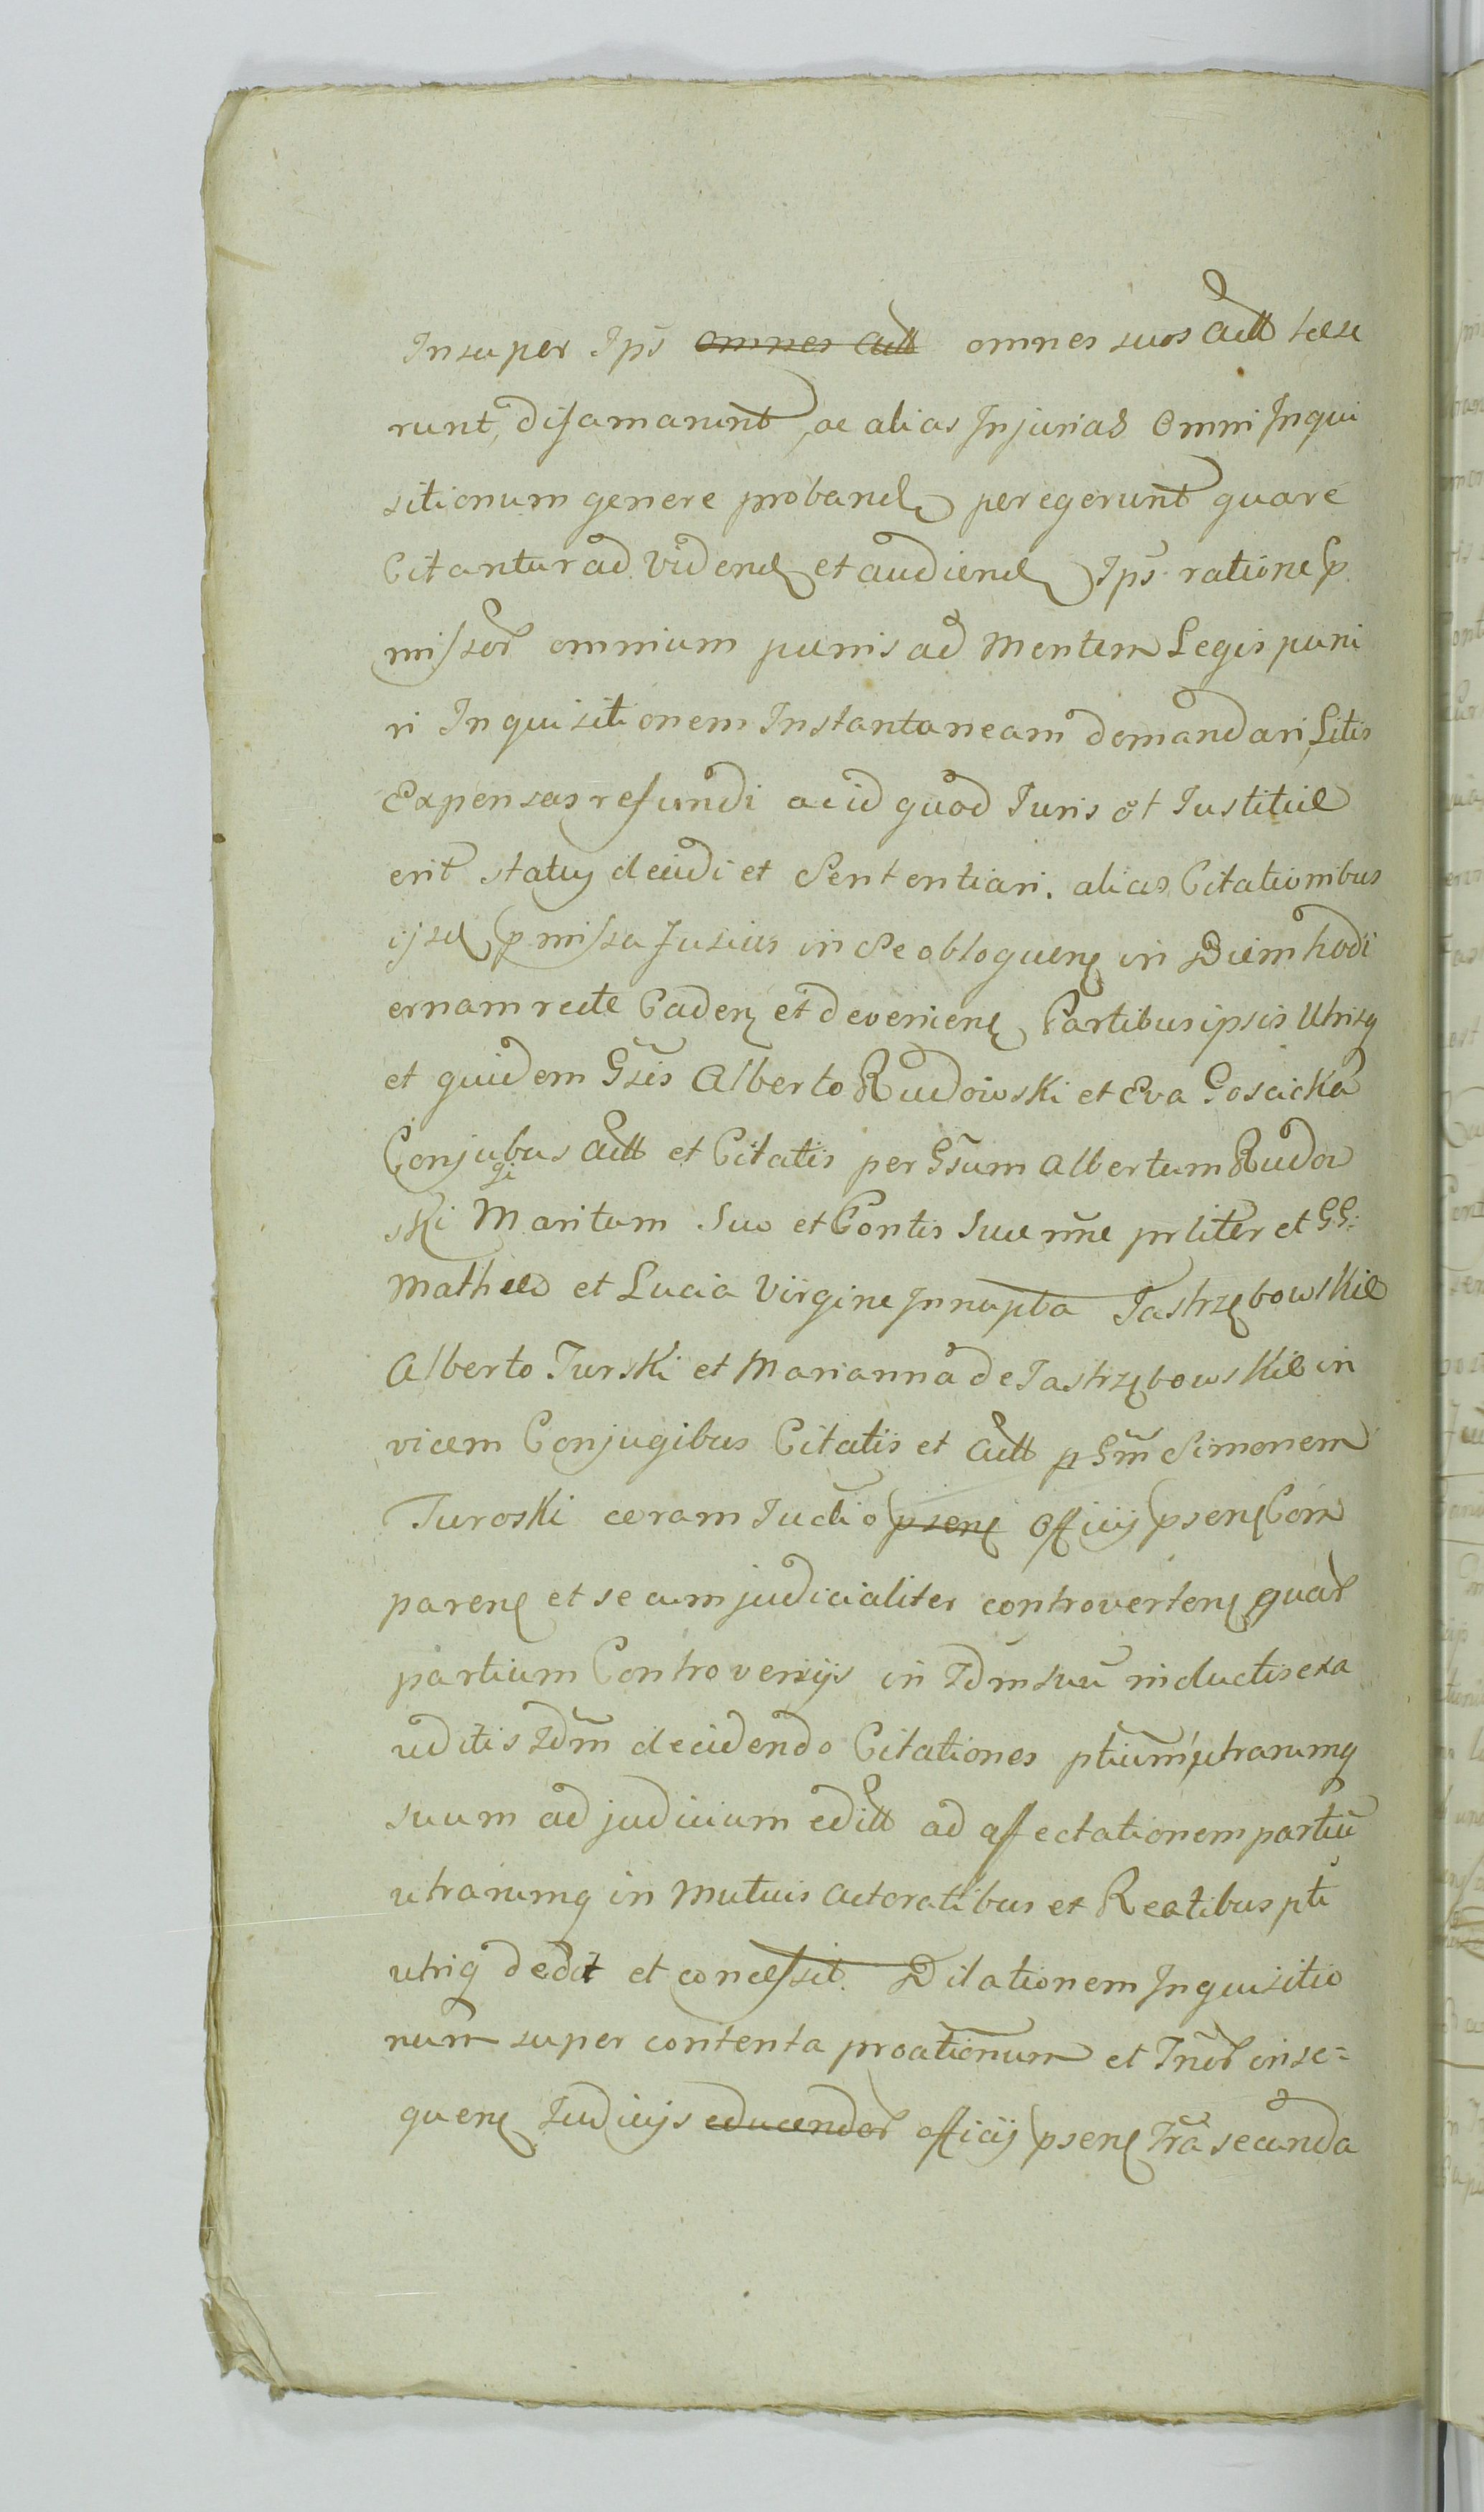 Insuper Ips omnes Actt omnes suos Actt læse
runt, difamarunt, ac alias Injurias omni Inqui
sitionum genere proband peregerunt quare
Citantur ad Vidend et audiend Ips ratione p
missor omnium pænis ad Mentem Legis puni
ri Inquisitionem Instantaneam demandari, Litis
Expensas refundi ac id quod Juris et Justitiæ
erit statuj decidi et Sententiari. alias Citationibus
ijsd pmissa fusius in Se obloquenꝭ in Diem hodi
ernam recte Caden et devenienꝭ Partibus ipsis Utrisq
et quidem Gsis Alberto Rudowski et Eva Goscicka
Conjugibus Actt et Citatis per Gsum Albertum Rudow
ski Maritum Suo et Contis Suæ nne prliter et GG:
Mathæo et Lucia Virgine Innupta Jastrzębowskie
Alberto Turski et Marianna de Jastrzębowskie in
vicem Conjugibus Citatis et Actt p Gm Simonem
Turoski coram Judio psenꝭ Officij psenꝭ Com
parenꝭ et secum judicialiter controvertenꝭ quar
partium Controversijs in Idm suu inductis exa
uditis Idm decidendo Citationes ptium utrarumq
suum ad judicium editt ad affectationem partiu
utrarumq in Mutuis Actoratibus et Reatibus pti
utriq dedit et concessit. Dilationem Inquisitio
num super contenta proationum et Tnor in se=
quenꝭ Judicijs educendor officij psenꝭ Tra secunda